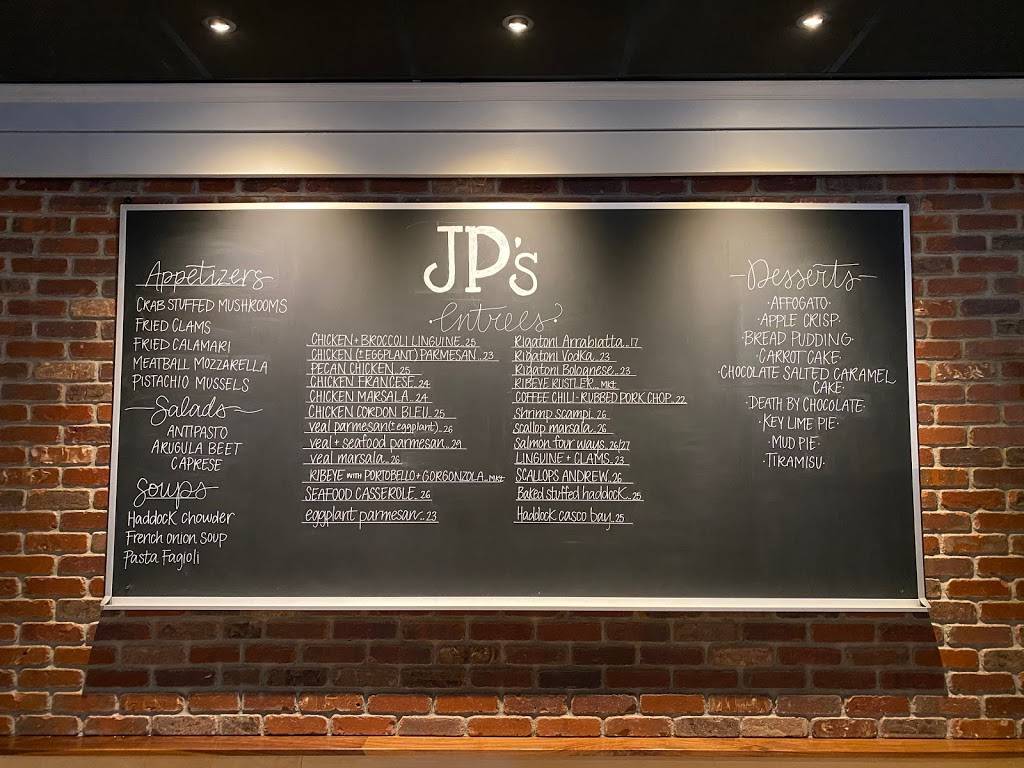 JP's
Appetizers
CRAB STUFFED MUSHROOMS
FRIED CLAMS
FRIED CALAMARI
MEATBALL MOZZARELLA
PISTACHIO MUSSELS
Salads
ANTIPASTO
ARUGULA BEET
CAPRESE
Soups
Haddock chowder
French onion soup
Pasta Fagioli
·entrees·
CHICKEN + BROCCOLI LINGUINE..25
CHICKEN (±EGGPLANT) PARMESAN..23
PECAN CHICKEN..25
CHICKEN FRANCESE..24
CHICKEN MARSALA..24
CHICKEN CORDON BLEU..25
veal parmesan (± eggplant)..26
veal + seafood parmesan..29
veal marsala..26
RIBEYE WITH PORTOBELLO + GORGONZOLA..MKt
SEAFOOD CASSEROLE..26
eggplant parmesan..23
Rigatoni Arrabiatta..17
Rigatoni Vodka..23
Rigatoni Bolognese..23
RIBEYE RUSTLER..MKt
COFFEE CHILI-RUBBED PORK CHOP..22
shrimp scampi..26
scallop marsala..26
Salmon four ways..26/27
LINGUINE + CLAMS..23
SCALLOPS ANDREW..26
Baked stuffed haddock..25
Haddock casco bay..25
Desserts
·AFFOGATO·
·APPLE CRISP·
·BREAD PUDDING·
·CARROT CAKE·
·CHOCOLATE SALTED CARAMEL
CAKE·
·DEATH BY CHOCOLATE·
·KEY LIME PIE·
·MUD PIE·
·TIRAMISU·